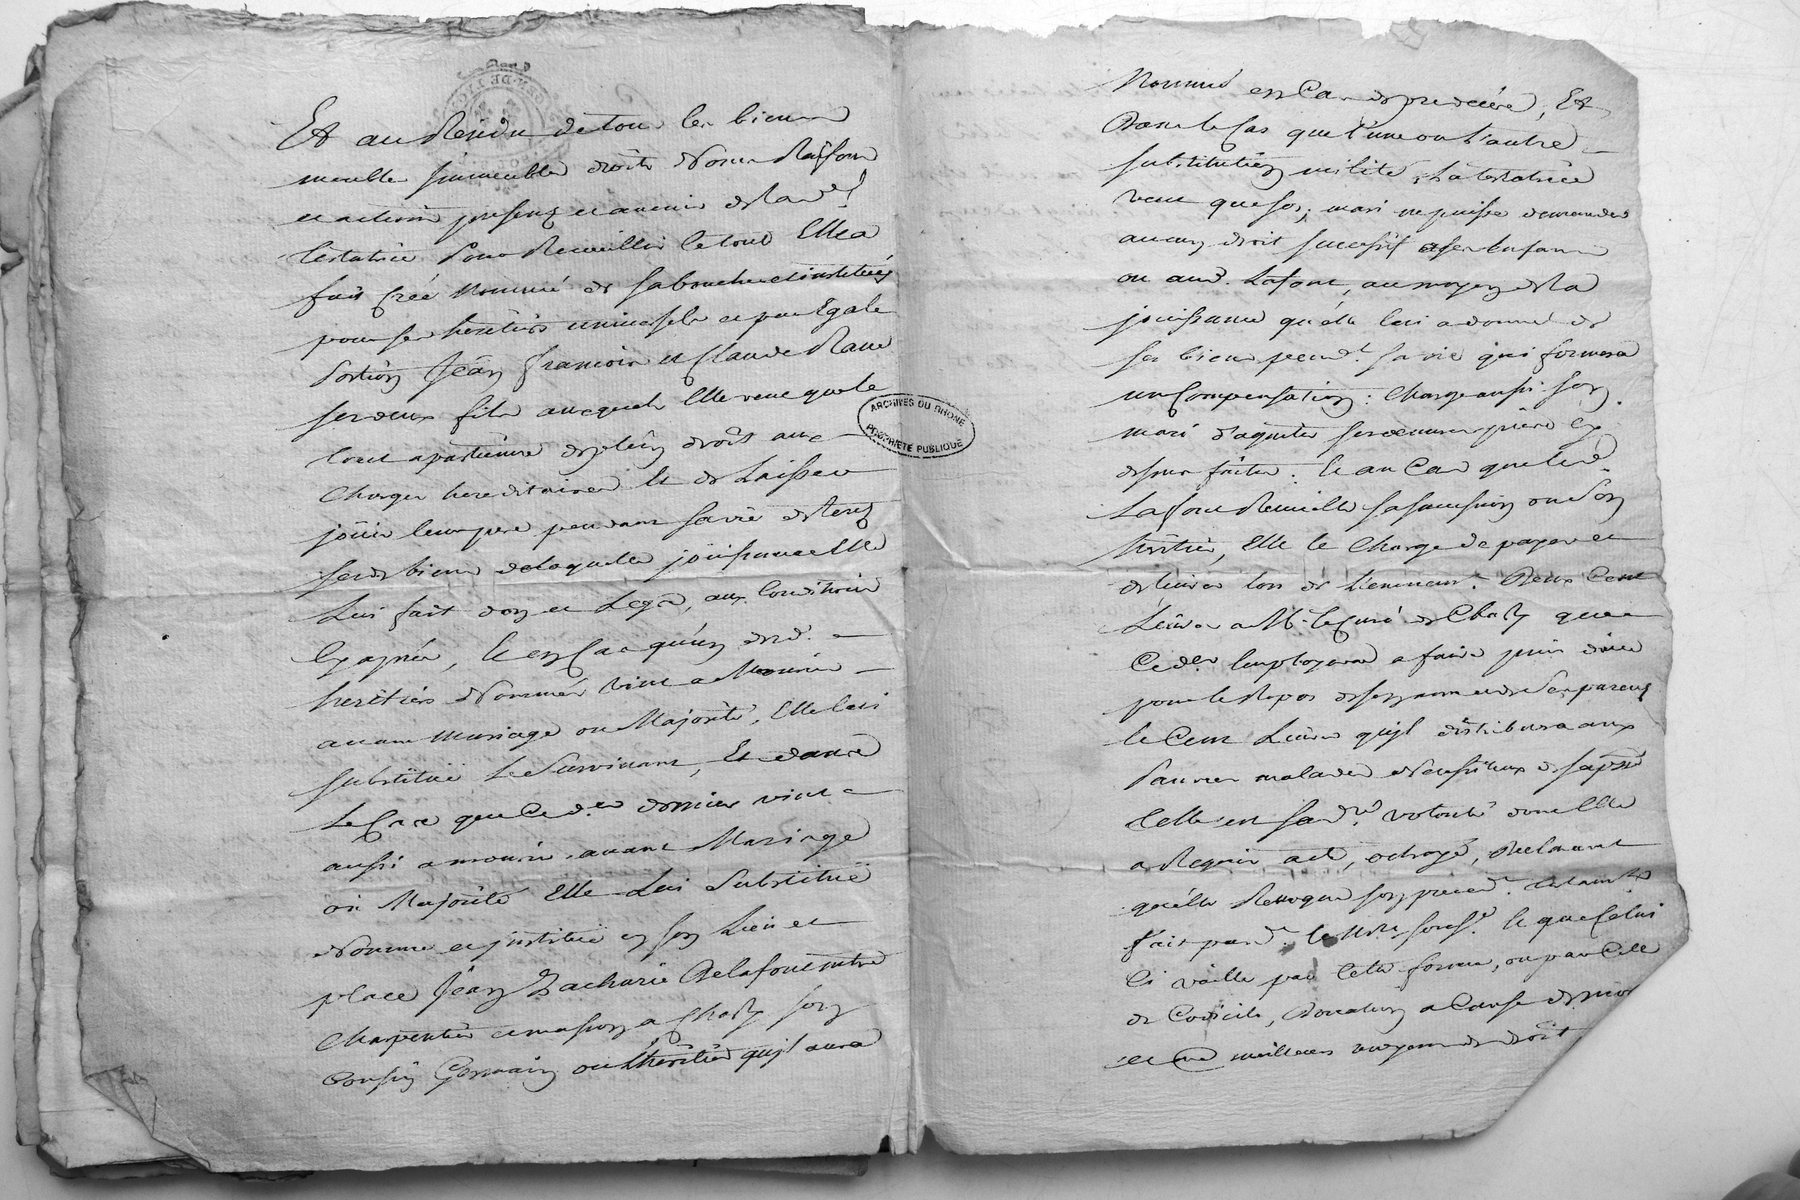 Et au Residu de tous les biens
meubles immeubles droits Noms Raisons
et actions presens et avenir de lad.
testatrice pour Recueillir le tout Elle a
fait créé Nommé de sa bouche et institués
pour ses heritiers universels et par Egale
portion Jean francois et Claude
ses deux fils auxquels Elle veut que le
tout apartienne de plein droit aux
charges hereditaires Et de Laisser
joüir leur pere pendant sa vie de tous
sesd. biens de laquelle joüissance Elle
Lui fait don et Legs, aux Conditions
Et en Cas qu'un desd.
heritiers Nommés vint a Mourir
avant Mariage ou Majorité, Elle lui
substituë Le Survivant, Et dans
Le Cas que Ce d.er dernier vint
aussi a mourir avant Mariage
ou Majorité Elle Lui Substituë
Nomme et jnstituë en son Lieu et
place Jean Zacharie Delafont
Charpentier et masson a Chasly son
Cousin Germain ou L'heritier qu'jl aura
ARCHIVES DU RHONE
PROPRIÉTÉ PUBLIQUE
Nommé en Cas de predécès, Et
Dans le Cas que l'une ou l'autre
substitution milite, La testatrice
veut que son mari ne puisse demander
aucun droit successif a ses Enfans
ou aud. Lafont, au moyen de la
joüissance qu'elle lui a donné de
ses biens pend.t sa vie qui formera
une Compensation: Charge aussi son
mari d'aquiter ses
Et au Cas que led.
Lafont Recueille sa succession ou son
heritier, Elle le Charge de payer et
delivrer lors de L'evenem.t Deux Cent
Livres a Mr. le Curé de Chasly que
Ce d.er Employera a faire prier dieu
pour le Repos de son ame et de Ses parens
le Cent Livres qu'jl distribuera aux
Pauvres malades
Telle est sa d.re volonté dont Elle
a Requis acte, octroyé, Declarant
qu'elle Revoque son preced.t testam.t
fait pard.t le No.re souss.é Et que Celui
Ci vaille par telle forme, ou par Celle
de Codicile, Donation a Cause de mort
et meilleurs moyens de droit